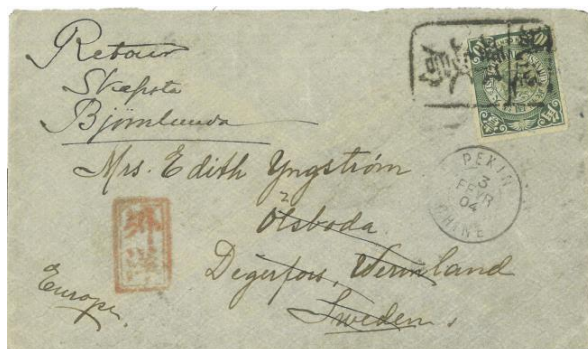 Retour
Skapsta
Björnlunda
Mrs. Edith Yngström
Ölsboda
Degerfors, Wermland
Sweden.
Europe.
PEKIN
3
FEVR
04
CHINE